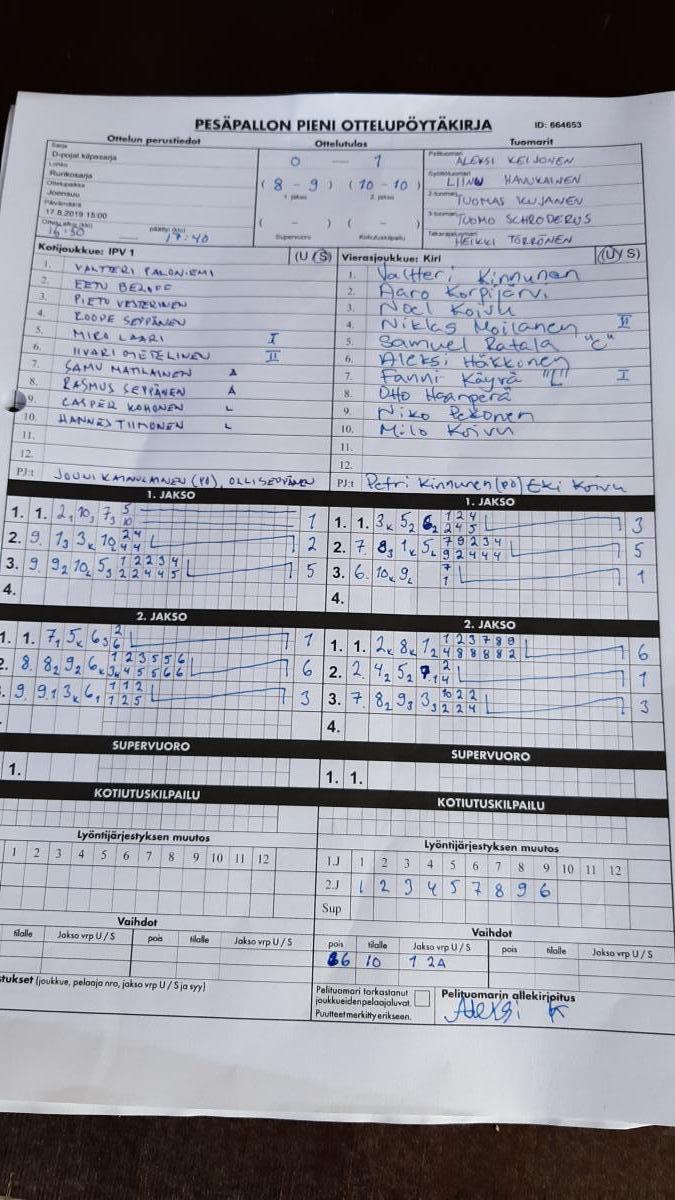 PESÄPALLON PIENI OTTELUPÖYTÄKIRJA ID: 664653
Ottelun perustiedot Ottelutulos Tuomarit
Sarja
D-pojat kilpasarja
Lohko
Runkosarja
Ottelupaikka
Joensuu
Päivämäärä
17.8.2019 15:00
Ottelu alkoi (klo) päättyi (klo)
16:50 17:40
0 — 1
(8 – 9) (10 – 10)
1. jakso 2. jakso
( – ) ( – )
Supervuoro Kotiutuskilpailu
Pelituomari
ALEKSI KEIJONEN
Syöttötuomari
LIINU HAVUKAINEN
2-tuomari
TUOMAS KUJANEN
3-tuomari
TUOMO SCHRODERUS
Takarajatuomari
HEIKKI TÖRRÖNEN
Kotijoukkue: IPV 1 (U / S)
1. VALTTERI PALONIEMI
2. EETU
3. PIETU VESTERINEN
4. ROOPE SEPPÄNEN
5. MIRO LAARI I
6. IIVARI II
7. SAMU MATILAINEN A
8. RASMUS SEPPÄNEN A
9. CASPER KOHONEN L
10. HANNES TIIMONEN L
11.
12.
PJ:t JOUNI KAINULAINEN (PO), OLLI SEPPÄNEN
Vierasjoukkue: Kiri (U / S)
1. Valtteri Kinnunen
2. Aaro Korpijärvi
3. Noel Koivu
4. Niklas Moilanen II
5. Samuel Ratala "C"
6. Aleksi Häkkönen
7. Fanni Käyrä "L" I
8. Otto Haanperä
9. Niko Pekonen
10. Milo Koivu
11.
12.
PJ:t Petri Kinnunen (PO) Eki Koivu
1. JAKSO
1. 1. 2, 10₃ 7₃ 5 10 1
2. 9. 1₃ 3ₖ 10₂ 24 44 2
3. 9. 9₂ 10₂ 5₃ 12234 22445 5
4.
1. JAKSO
1. 1. 3ₖ 5₂ 6₂ 124 245 3
2. 7. 8₃ 1ₖ 5₂ 79234 92444 5
3. 6. 10ₖ 9₂ 7 1 1
4.
2. JAKSO
1. 1. 7₁ 5ₖ 6₃ 2 6 1
2. 8. 8₂ 9₂ 6ₖ 123556 345566 6
3. 9. 9₁ 3ₖ 6₁ 112 125 3
2. JAKSO
1. 1. 2ₖ 8ₖ 1₂ 123789 488882 6
2. 2. 4₂ 5₂ 7₁ 2 4 1
3. 7. 8₂ 9₃ 3₃ 1022 224 3
4.
SUPERVUORO
1.
SUPERVUORO
1. 1.
KOTIUTUSKILPAILU
KOTIUTUSKILPAILU
Lyöntijärjestyksen muutos
1 2 3 4 5 6 7 8 9 10 11 12
Lyöntijärjestyksen muutos
1.J 1 2 3 4 5 6 7 8 9 10 11 12
2.J 1 2 3 4 5 7 8 9 6
Sup
Vaihdot
tilalle Jakso vrp U / S pois tilalle Jakso vrp U / S
Vaihdot
pois tilalle Jakso vrp U / S pois tilalle Jakso vrp U / S
6 10 1 2A
(joukkue, pelaaja nro, jakso vrp U / S ja syy)
Pelituomari tarkastanut
joukkueiden pelaajaluvat.
Puutteet merkitty erikseen.
Pelituomarin allekirjoitus
Aleksi K